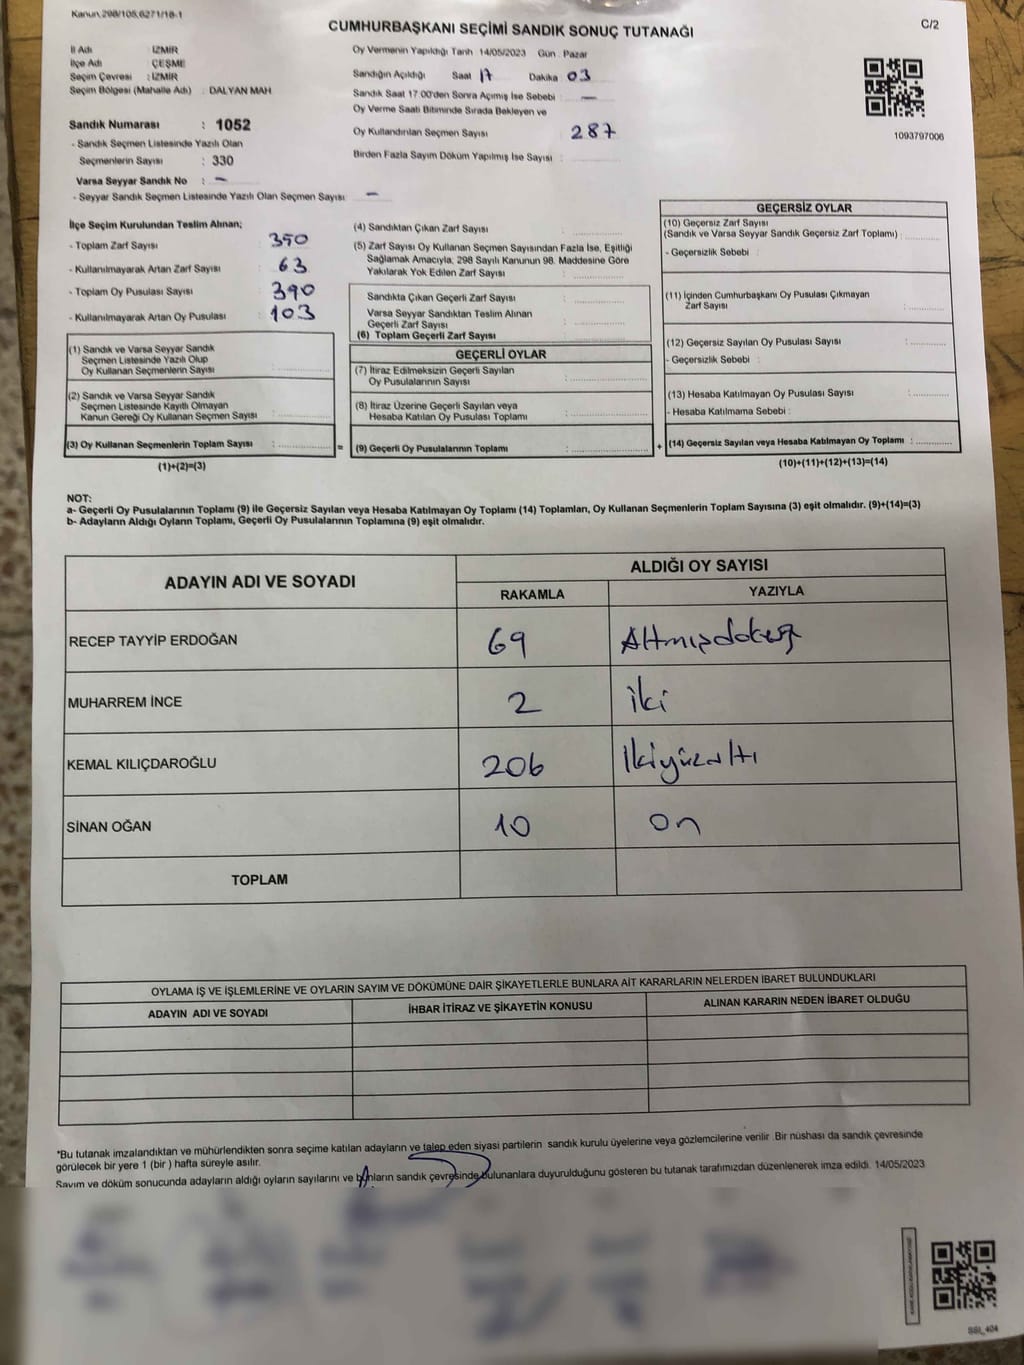 Kanun.298/105,6271/18-1
CUMHURBAŞKANI SEÇİMİ SANDIK SONUÇ TUTANAĞI
C/2
İl Adı : İZMİR
İlçe Adı : ÇEŞME
Seçim Çevresi : İZMİR
Seçim Bölgesi (Mahalle Adı) : DALYAN MAH
Sandık Numarası : 1052
- Sandık Seçmen Listesinde Yazılı Olan
Seçmenlerin Sayısı : 330
Varsa Seyyar Sandık No : –
- Seyyar Sandık Seçmen Listesinde Yazılı Olan Seçmen Sayısı : –
Oy Vermenin Yapıldığı Tarih 14/05/2023 Gün . Pazar
Sandığın Açıldığı Saat 17 Dakika 03
Sandık Saat 17.00'den Sonra Açımış İse Sebebi : –
Oy Verme Saati Bitiminde Sırada Bekleyen ve
Oy Kullandırılan Seçmen Sayısı 287
Birden Fazla Sayım Döküm Yapılmış İse Sayısı :
1093797006
İlçe Seçim Kurulundan Teslim Alınan;
- Toplam Zarf Sayısı : 350
- Kullanılmayarak Artan Zarf Sayısı : 63
- Toplam Oy Pusulası Sayısı : 390
- Kullanılmayarak Artan Oy Pusulası : 103
(1) Sandık ve Varsa Seyyar Sandık
Seçmen Listesinde Yazılı Olup
Oy Kullanan Seçmenlerin Sayısı :
(2) Sandık ve Varsa Seyyar Sandık
Seçmen Listesinde Kayıtlı Olmayan
Kanun Gereği Oy Kullanan Seçmen Sayısı :
(3) Oy Kullanan Seçmenlerin Toplam Sayısı : =
(1)+(2)=(3)
(4) Sandıktan Çıkan Zarf Sayısı :
(5) Zarf Sayısı Oy Kullanan Seçmen Sayısından Fazla İse, Eşitliği
Sağlamak Amacıyla, 298 Sayılı Kanunun 98. Maddesine Göre
Yakılarak Yok Edilen Zarf Sayısı :
Sandıkta Çıkan Geçerli Zarf Sayısı :
Varsa Seyyar Sandıktan Teslim Alınan
Geçerli Zarf Sayısı :
(6) Toplam Geçerli Zarf Sayısı :
GEÇERLİ OYLAR
(7) İtiraz Edilmeksizin Geçerli Sayılan
Oy Pusulalarının Sayısı :
(8) İtiraz Üzerine Geçerli Sayılan veya
Hesaba Katılan Oy Pusulası Toplamı :
(9) Geçerli Oy Pusulalarının Toplamı : +
GEÇERSİZ OYLAR
(10) Geçersiz Zarf Sayısı
(Sandık ve Varsa Seyyar Sandık Geçersiz Zarf Toplamı) :
- Geçersizlik Sebebi :
(11) İçinden Cumhurbaşkanı Oy Pusulası Çıkmayan
Zarf Sayısı :
(12) Geçersiz Sayılan Oy Pusulası Sayısı :
- Geçersizlik Sebebi :
(13) Hesaba Katılmayan Oy Pusulası Sayısı :
- Hesaba Katılmama Sebebi :
(14) Geçersiz Sayılan veya Hesaba Katılmayan Oy Toplamı :
(10)+(11)+(12)+(13)=(14)
NOT:
a- Geçerli Oy Pusulalarının Toplamı (9) ile Geçersiz Sayılan veya Hesaba Katılmayan Oy Toplamı (14) Toplamları, Oy Kullanan Seçmenlerin Toplam Sayısına (3) eşit olmalıdır. (9)+(14)=(3)
b- Adayların Aldığı Oyların Toplamı, Geçerli Oy Pusulalarının Toplamına (9) eşit olmalıdır.
ADAYIN ADI VE SOYADI
ALDIĞI OY SAYISI
RAKAMLA YAZIYLA
RECEP TAYYİP ERDOĞAN 69 Altmışdokuz
MUHARREM İNCE 2 iki
KEMAL KILIÇDAROĞLU 206 ikiyüzaltı
SİNAN OĞAN 10 on
TOPLAM
OYLAMA İŞ VE İŞLEMLERİNE VE OYLARIN SAYIM VE DÖKÜMÜNE DAİR ŞİKAYETLERLE BUNLARA AİT KARARLARIN NELERDEN İBARET BULUNDUKLARI
ADAYIN ADI VE SOYADI İHBAR İTİRAZ VE ŞİKAYETİN KONUSU ALINAN KARARIN NEDEN İBARET OLDUĞU
*Bu tutanak imzalandıktan ve mühürlendikten sonra seçime katılan adayların ve talep eden siyasi partilerin sandık kurulu üyelerine veya gözlemcilerine verilir .Bir nüshası da sandık çevresinde
görülecek bir yere 1 (bir ) hafta süreyle asılır.
Sayım ve döküm sonucunda adayların aldığı oyların sayılarını ve bunların sandık çevresinde bulunanlara duyurulduğunu gösteren bu tutanak tarafımızdan düzenlenerek imza edildi. 14/05/2023
SSI_404